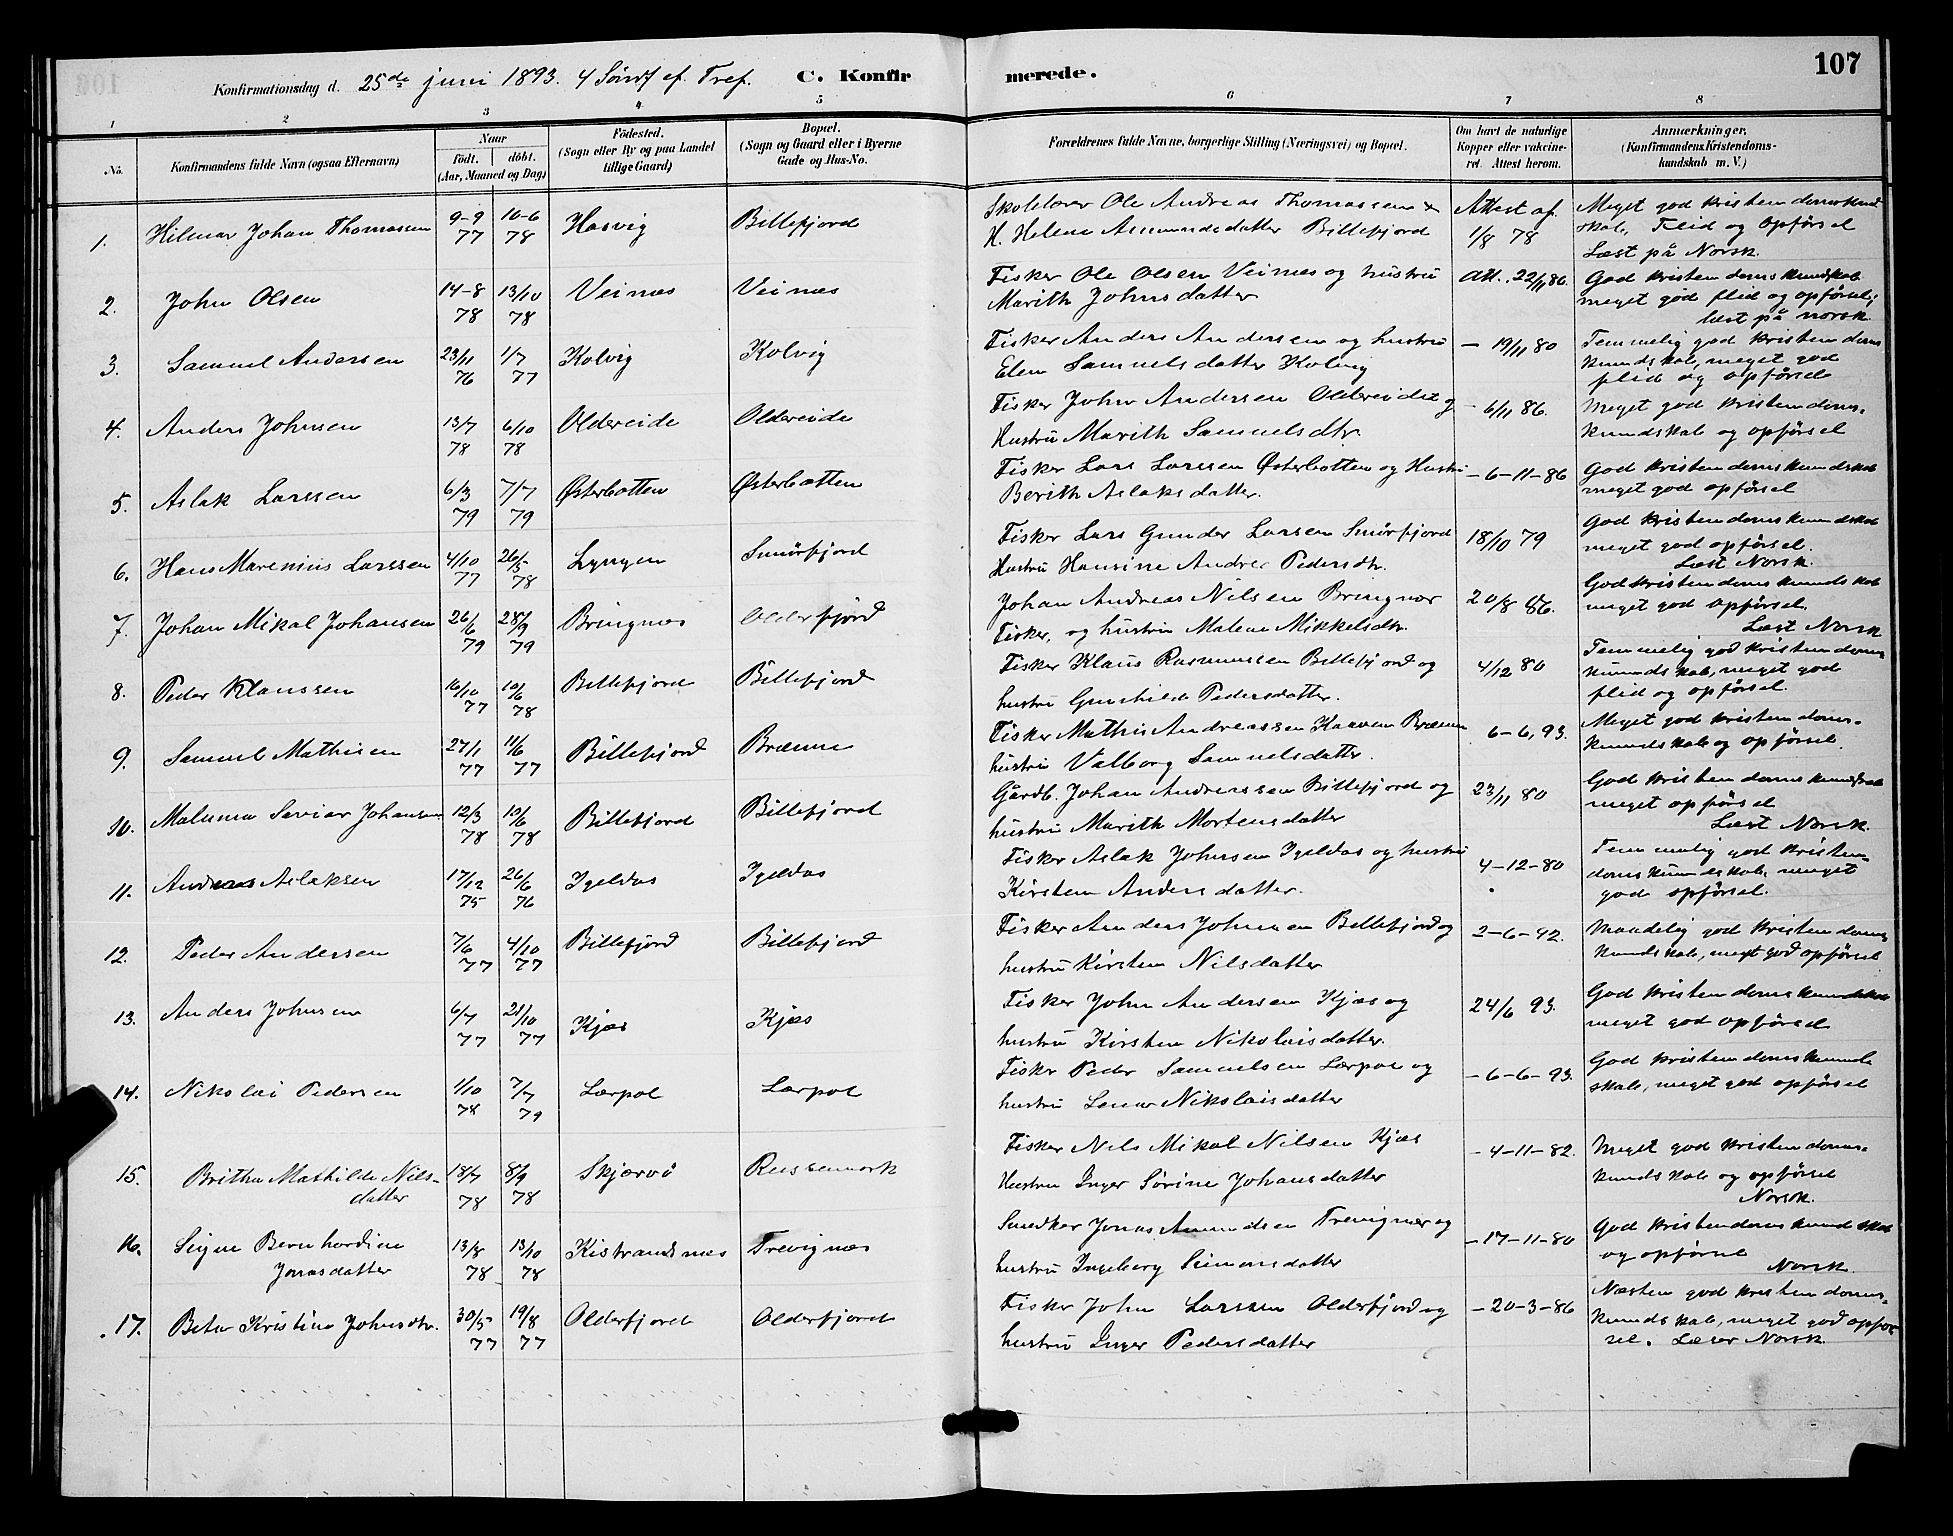 107
Konfirmationsdag d. 25de juni 1893. 4 Sönd ef. Tref. C. Konfir merede.
1 2 3 4 5 6 7 8
No. Konfirmandens fulde Navn (ogsaa Efternavn)
Naar
födt. döbt.
(Aar, Maaned og Dag)
Födested.
(Sogn eller By og paa Landet
tillige Gaard)
Bopæl.
(Sogn og Gaard eller i Byerne
Gade og Hus-No.
Forældrenes fulde Navne, borgerlige Stilling (Næringsvei) og Bopæl.
Om havt de naturlige
Kopper eller vakcine-
ret. Attest herom.
Anmærkninger.
(Konfirmandens Kristendoms-
kundskab m. V.)
1. Hilmar Johan Thomassen 9-9 77 10-6 78 Hasvig Billefjord
Skolelærer Ole Andreas Thomassen &
H. Helene Amundsdatter Billefjord
Attest af
1/8 78
Meget god kristendomskund
skab, Flid og Opførsel
Læst på Norsk.
2. John Olsen 14-8 78 13/10 78 Veines Veines
Fisker Ole Olsen Veines og hustru
Marith Johnsdatter
Att. 22/11 86.
God kristendomskundskab
meget god flid og opførsel;
læst på norsk
3. Samuel Andersen 23/11 76 1/7 77 Kolvig Kolvig
Fisker Anders Andersen og hustru
Elen Samuelsdatter Kolvig
- 19/11 80
Temmelig god kristendoms
kundskab, meget god
flid og opførsel
4. Anders Johnsen 13/7 78 6/10 78 Oldereide Oldereide
Fisker John Andersen Oldereidet og
Hustru Marith Samuelsdtr.
- 6/11 86.
Meget god kristendoms-
kundskab og opførsel
5. Aslak Larssen 6/3 79 7/7 79 Østerbotten Østerbotten
Fisker Lars Larssen Østerbotten og Hustru
Berith Aslaksdatter.
- 6-11-86
God kristendomskundskab
meget god opførsel
6. Hans Marenius Larssen 4/10 77 26/5 78 Lyngen Smörfjord
Fisker Lars Gunder Larsen Smörfjord
Hustru Hansine Andrea Pedersdtr.
18/10 79
God kristendomskundskab
meget god opførsel.
Læst Norsk.
7. Johan Mikal Johansen 26/6 79 28/9 79 Bringnes Olderfjord
Johan Andreas Nilsen Bringnes
Fisker, og hustru Malene Mikkelsdtr.
20/8 86.
God kristendomskundskab
meget god opførsel.
Læst Norsk
8. Peder Klaussen 16/10 77 10/6 78 Billefjord Billefjord
Fisker Klaus Rasmussen Billefjord og
hustru Gunhilde Pedersdatter.
4/12 80
Temmelig god kristendoms
kundskab, meget god
flid og opførsel.
9. Samuel Mathisen 27/1 77 11/6 77 Billefjord Brænne
Fisker Mathis Andreassen Karven Brænne
hustru Valborg Samuelsdatter.
6-6, 93.
Meget god kristendoms-
kundskab og opførsel.
10. Malmma Saviar Johansen 12/3 78 10/6 78 Billefjord Billefjord
Gårdb. Johan Andreassen Billefjord og
hustru Marith Mortensdatter
23/11 80
God kristendomskundskab
meget opførsel
Læst Norsk.
11. Anders Aslaksen 17/12 75 26/6 76 Igeldas Igeldas
Fisker Aslak Johnsen Igeldas og hustru
Kirsten Andersdatter.
4-12-80
Temmelig god kristen-
domskundskab, meget
god opførsel.
12. Peder Andersen 7/6 77 4/10 77 Billefjord Billefjord
Fisker Anders Johnsen Billefjord og
hustru Kirsten Nilsdatter
2-6-92.
Maadelig god kristendoms
kundskab, meget god opførsel
13. Anders Johnsen 6/7 77 21/10 77 Kjæs Kjæs
Fisker John Andersen Kjæs og
hustru Kirsten Nikolaisdatter.
24/6 93.
God kristendomskundskab
meget god opførsel
14. Nikolai Pedersen 1/10 78 7/7 79 Lærpol Lærpol
Fisker Peder Samuelsen Lærpol og
hustru Nikolaisdatter
- 6-6-93.
God kristendomskund
skab, meget god opførsel
15. Britha Mathilde Nils-
datter 18/7 78 8/9 78 Skjærvö Russemark
Fisker Nils Mikal Nilsen Kjæs
Hustru Inger Sörine Johansdatter
- 4-11-82.
Meget god kristendoms-
kundskab og opførsel
Norsk.
16. Signe Bernhardine
Jonasdatter 13/8 78 13/10 78 Kistrandsnes Trevignæs
Smedker Jonas Amundsen Trevignæs og
hustru Ingeborg Simonsdatter
- 17-11-80
God kristendomskundskab
og opførsel
Norsk.
17. Beta Kristine Johnsdtr. 30/5 77 19/8 77 Olderfjord Olderfjord
Fisker John Larssen Olderfjord og
hustru Inger Pedersdatter
- 20-3-86
Næsten god kristendoms-
kundskab, meget god opfør
sel. Læser Norsk.